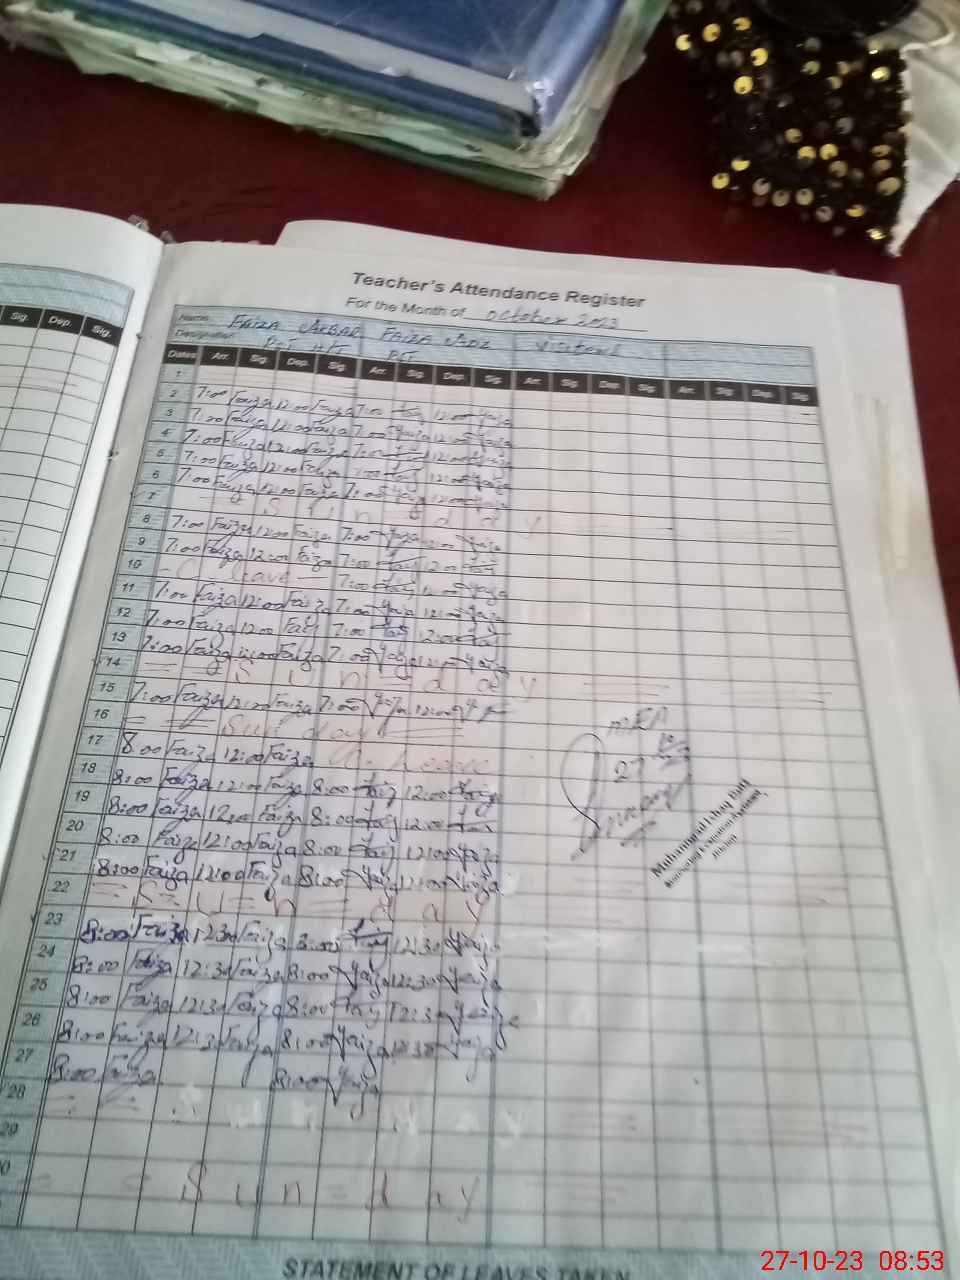 Teacher's Attendance Register
For the Month of October 2023
Name FAIZA AKBAR FAIZA AZIZ Visitors
Designation PST H/T PST
Sig. Dep. Sig.
Dates Arr. Sig. Dep. Sig. Arr. Sig. Dep. Sig. Arr. Sig. Dep. Sig. Arr. Sig. Dep. Sig.
1
2 7:00 Faiza 12:00 Faiza 7:00 Faiza 12:00 Faiza
3 7:00 Faiza 12:00 Faiza 7:00 Faiza 12:00 Faiza
4 7:00 Faiza 12:00 Faiza 7:00 Faiza 12:00 Faiza
5 7:00 Faiza 12:00 Faiza 7:00 Faiza 12:00 Faiza
6 7:00 Faiza 12:00 Faiza 7:00 Faiza 12:00 Faiza
7 Sunday
8 7:00 Faiza 12:00 Faiza 7:00 Faiza 12:00 Faiza
9 7:00 Faiza 12:00 Faiza 7:00 Faiza 12:00 Faiza
10 C. Leave 7:00 Faiza 12:00 Faiza
11 7:00 Faiza 12:00 Faiza 7:00 Faiza 12:00 Faiza
12 7:00 Faiza 12:00 Faiza 7:00 Faiza 12:00 Faiza
13 7:00 Faiza 12:00 Faiza 7:00 Faiza 12:00 Faiza
14 Sunday
15 7:00 Faiza 12:00 Faiza 7:00 Faiza 12:00
16 Sunday
17 8:00 Faiza 12:00 Faiza Leave
18 8:00 Faiza 12:00 Faiza 8:00 Faiza 12:00 Faiza
19 8:00 Faiza 12:00 Faiza 8:00 Faiza 12:00 Faiza
20 8:00 Faiza 12:00 Faiza 8:00 Faiza 12:00 Faiza
21 8:00 Faiza 12:00 Faiza 8:00 Faiza 12:00 Faiza
22 Sunday
23 8:00 Faiza 12:30 Faiza 8:00 Faiza 12:30 Faiza
24 8:00 Faiza 12:30 Faiza 8:00 Faiza 12:30 Faiza
25 8:00 Faiza 12:30 Faiza 8:00 Faiza 12:30 Faiza
26 8:00 Faiza 12:30 Faiza 8:00 Faiza 12:30 Faiza
27 8:00 Faiza 8:00 Faiza
28 Sunday
29
Sunday
MEA
27
Muhammad Ishaq Butt
STATEMENT OF LEAVES TAKEN
27-10-23 08:53